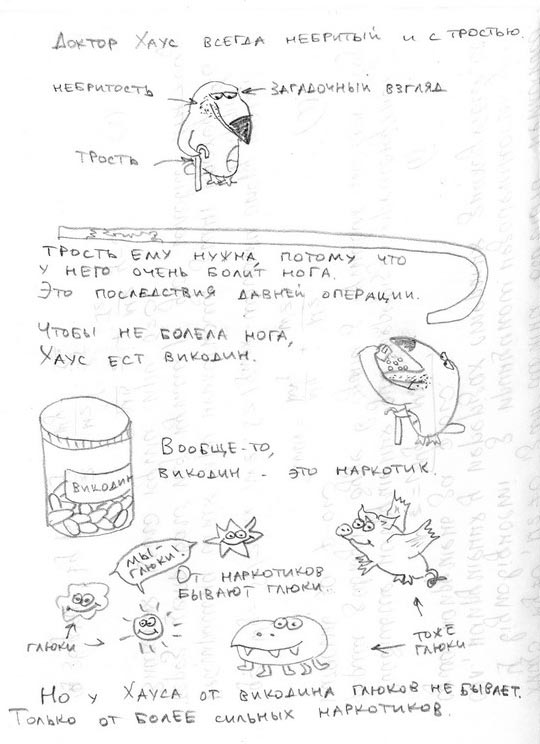 Доктор Хаус всегда небритый и с тростью.
небритость
загадочный взгляд
трость
Трость ему нужна, потому что
у него очень болит нога.
Это последствия давней операции.
Чтобы не болела нога,
Хаус ест викодин.
Викодин
Вообще-то,
викодин - это наркотик.
Мы - глюки!
От наркотиков
бывают глюки.
глюки
тоже
глюки
Но у Хауса от викодина глюков не бывает.
Только от более сильных наркотиков.